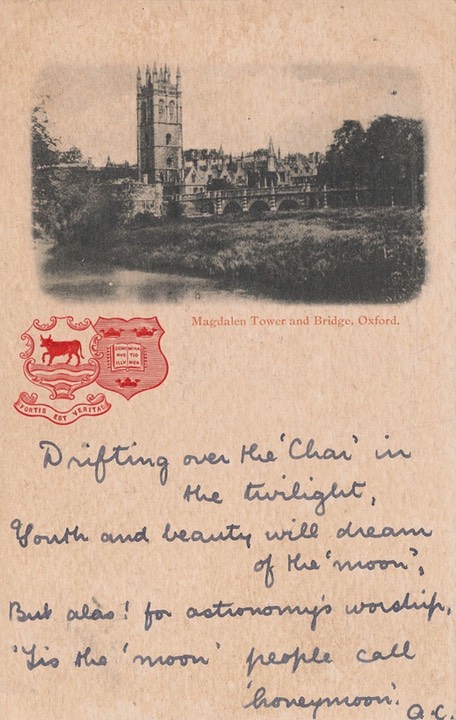 Magdalen Tower and Bridge, Oxford.
DOMI MINA
NVS TIO
ILLV MEA
FORTIS EST VERITAS
Drifting over the 'Char' in
the twilight,
Youth and beauty will dream
of the 'moon',
But alas! for astronomy's worship,
'Tis the 'moon' people call
'honeymoon'.
A.C.